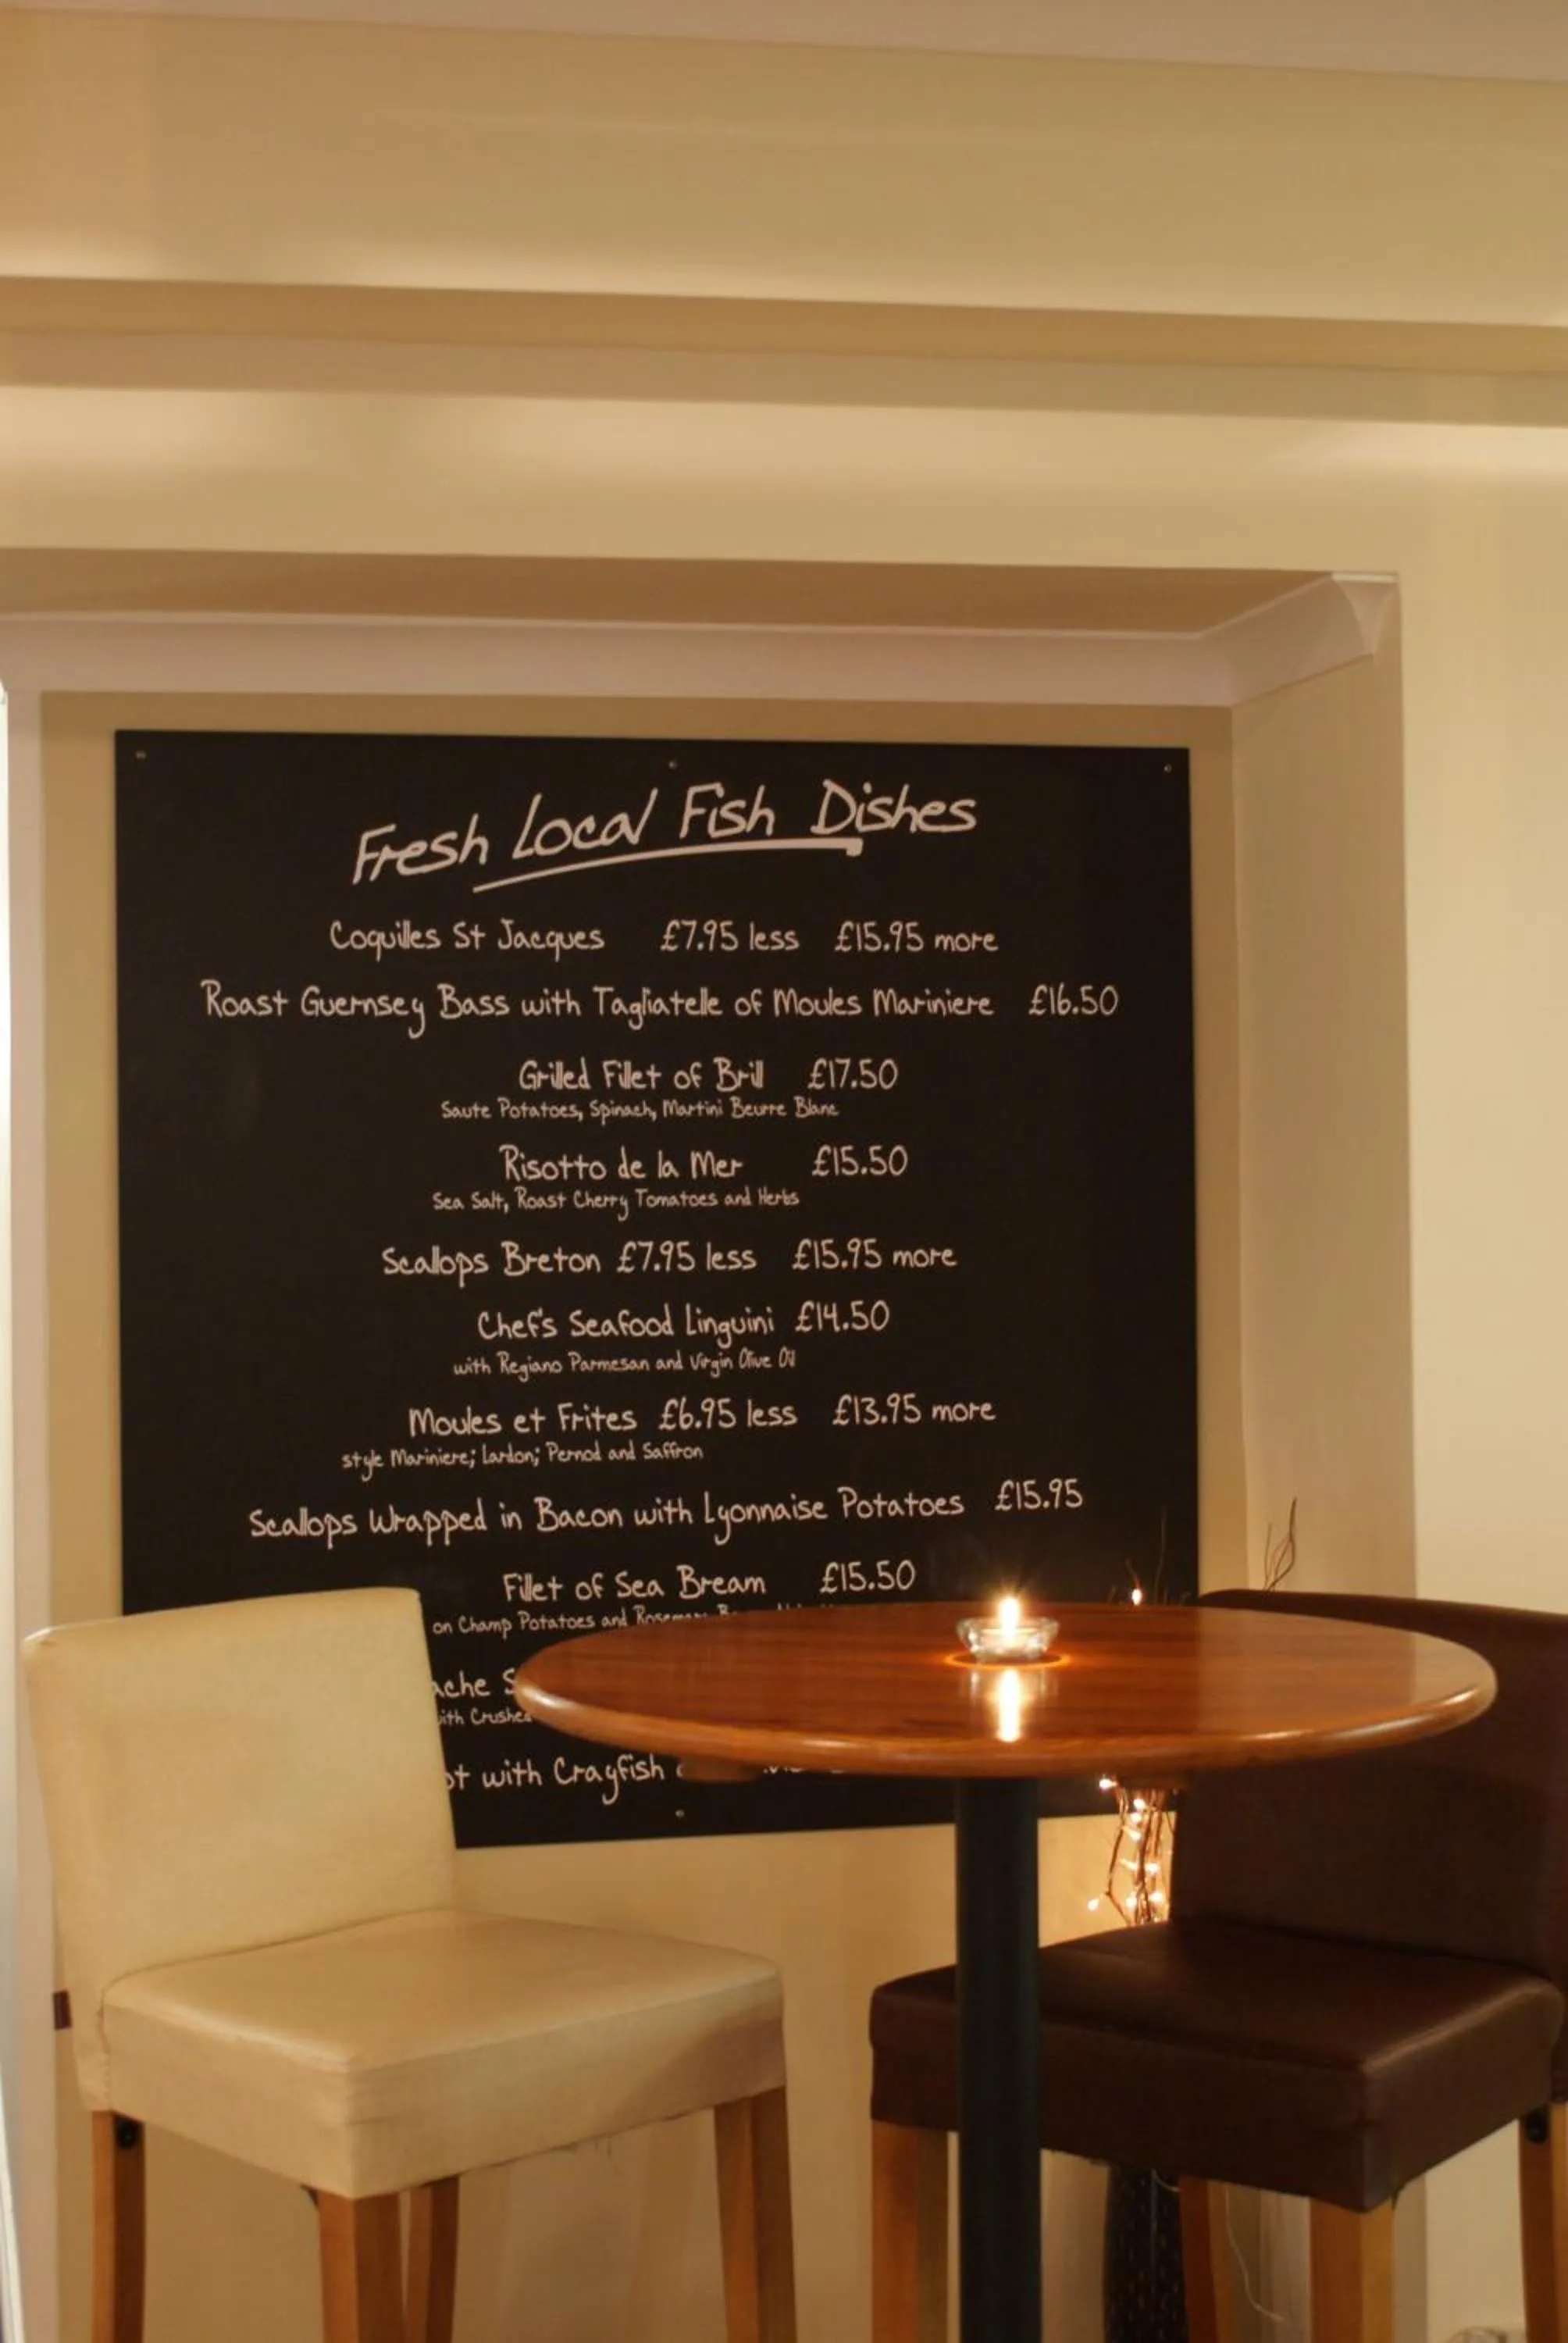 Fresh Local Fish Dishes
Coquilles St Jacques £7.95 less £15.95 more
Roast Guernsey Bass with Tagliatelle of Moules Mariniere £16.50
Grilled Fillet of Brill £17.50
Saute Potatoes, Spinach, Martini Beurre Blanc
Risotto de la Mer £15.50
Sea Salt, Roast Cherry Tomatoes and Herbs
Scallops Breton £7.95 less £15.95 more
Chef's Seafood Linguini £14.50
with Regiano Parmesan and Virgin Olive Oil
Moules et Frites £6.95 less £13.95 more
style Mariniere; Lardon; Pernod and Saffron
Scallops Wrapped in Bacon with Lyonnaise Potatoes £15.95
Fillet of Sea Bream £15.50
on Champ Potatoes and
with Crayfish